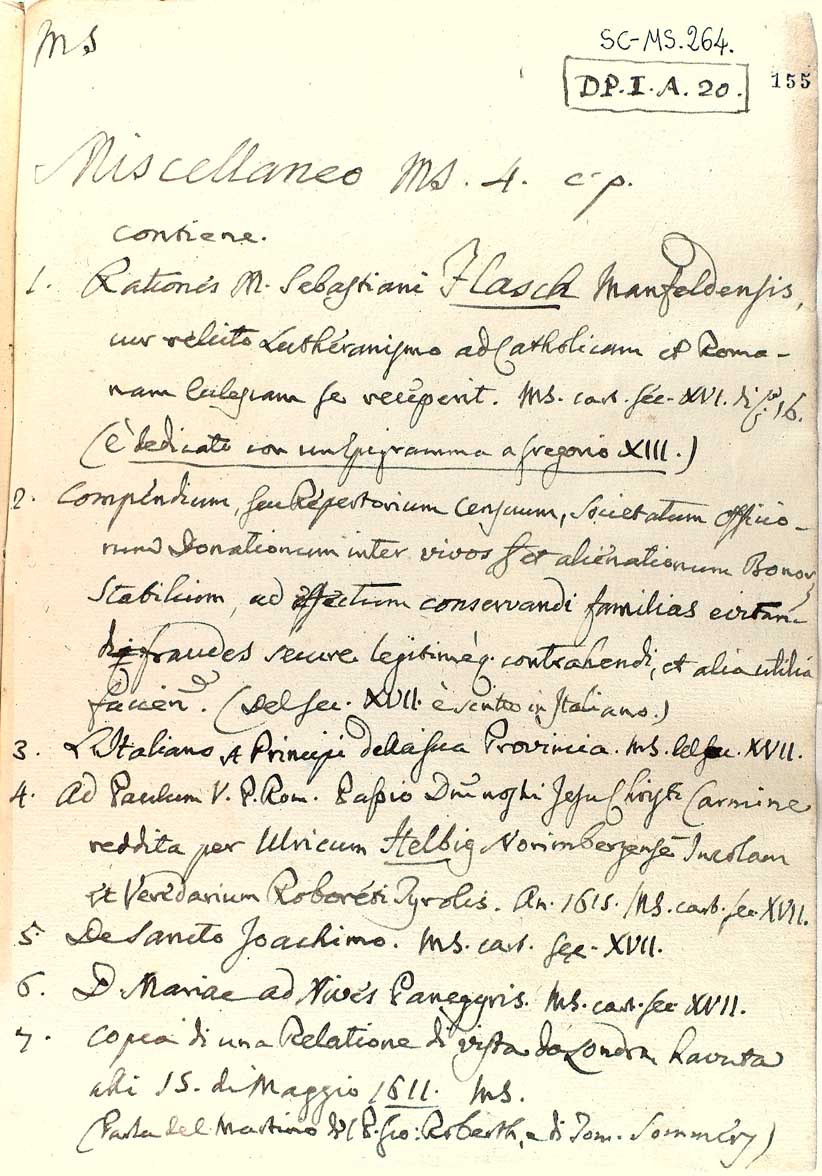 MS
SC-MS.264.
DP.I.A.20.
155
Miscellaneo MS. 4. c.p.
contiene.
1. Rationes M. Sebastiani Flasch Manfeldensis,
cur relicto Lutheranismo ad Catholicam et Roma-
nam Eclesiam se receperit. MS. cart. sec. XVI. di 16.
(è dedicato con un Epigramma a Gregorio XIII.)
2. Compendium, seu Repertorium Censuum, Societatum Officio-
rum Donationum inter vivos et alienationum Bonor
Stabilium, ad effectum conservandi familias evitan-
di fraudes secure legitimeq. contrahendi, et alia utilia
facien. (Del sec. XVII. è scritto in Italiano.)
3. L'Italiano A Principi della sua Provincia. MS. del sec. XVII.
4. Ad Paulum V. P. Rom. Passio Dni nostri Jesu Christi Carmine
reddita per Ulricum Helbig Norimbergensē Incolam
et Veredarium Roboreti Tyrolis. An. 1615. MS. cart. sec. XVII.
5. De Sancto Joachimo. MS. cart. sec. XVII.
6. D. Mariae ad Nives Panegyris. MS. cart. sec. XVII.
7. Copia di una Relatione di vista da Londra havuta
alli 15. di Maggio 1611. MS.
(Parla del Martirio del P. Gio: Roberth, e di Tom. Sommery)